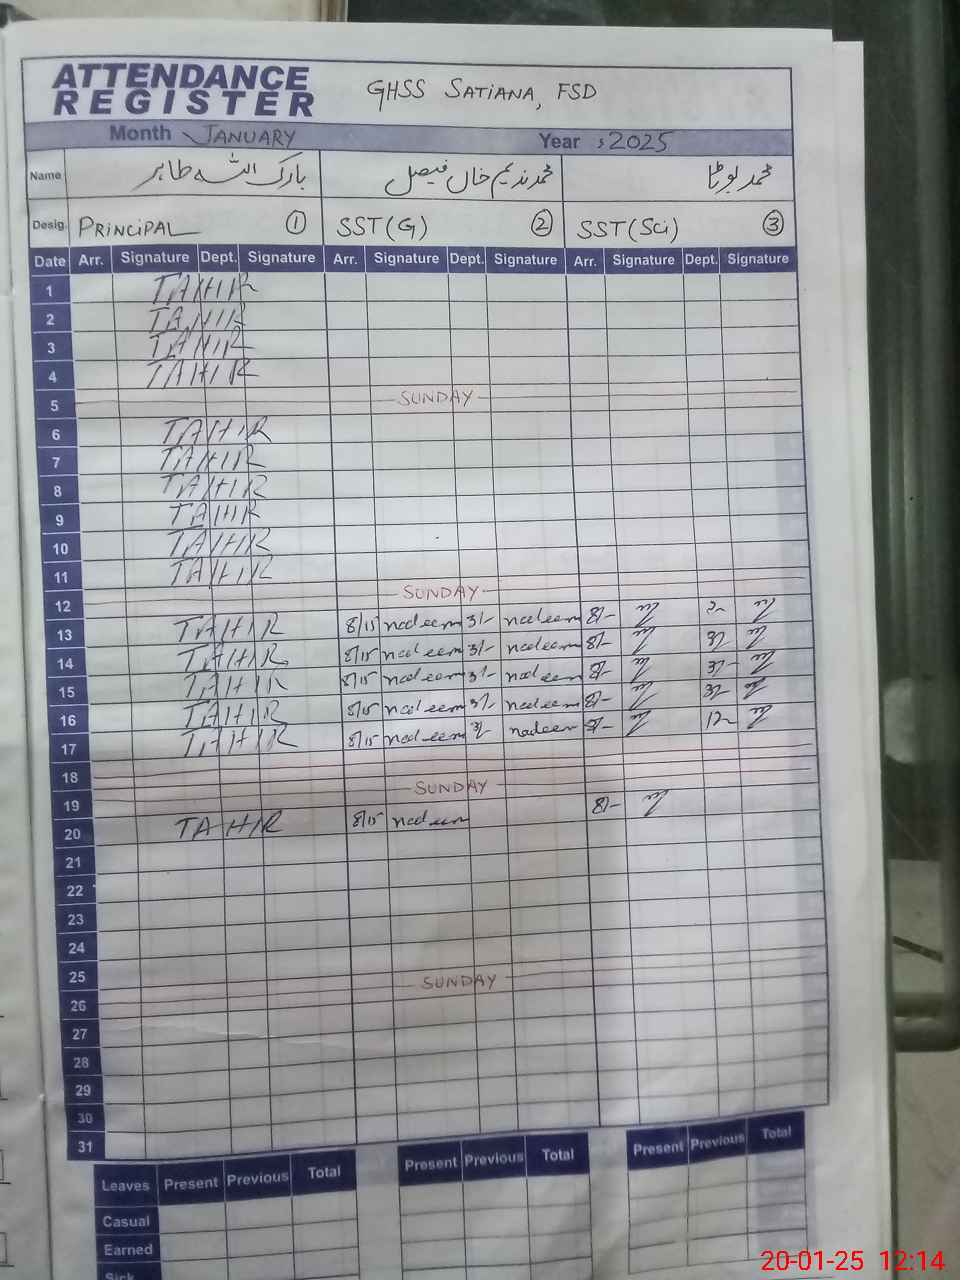 ATTENDANCE
REGISTER
GHSS SATIANA, FSD
Month JANUARY Year : 2025
Name بارک اللہ طاہر محمد ندیم خاں فیصل محمد بوٹا
Desig. PRINCIPAL 1 SST(G) 2 SST(Sci) 3
Date Arr. Signature Dept. Signature Arr. Signature Dept. Signature Arr. Signature Dept. Signature
1 TAHIR
2 TAHIR
3 TAHIR
4 TAHIR
5 SUNDAY
6 TAHIR
7 TAHIR
8 TAHIR
9 TAHIR
10 TAHIR
11 TAHIR
12 SUNDAY
13 TAHIR 8/15 nadeem 3/- nadeem 8/-
14 TAHIR 8/15 nadeem 3/- nadeem 8/-
15 TAHIR 8/15 nadeem 3/- nadeem 8/-
16 TAHIR 8/15 nadeem 3/- nadeem 8/-
17 TAHIR 8/15 nadeem nadeem 8/- 12-
18
19 SUNDAY
20 TAHIR 8/15 nadeem 8/-
21
22
23
24
25
26 SUNDAY
27
28
29
30
31
Leaves Present Previous Total Present Previous Total Present Previous Total
Casual
Earned
Sick
20-01-25 12:14